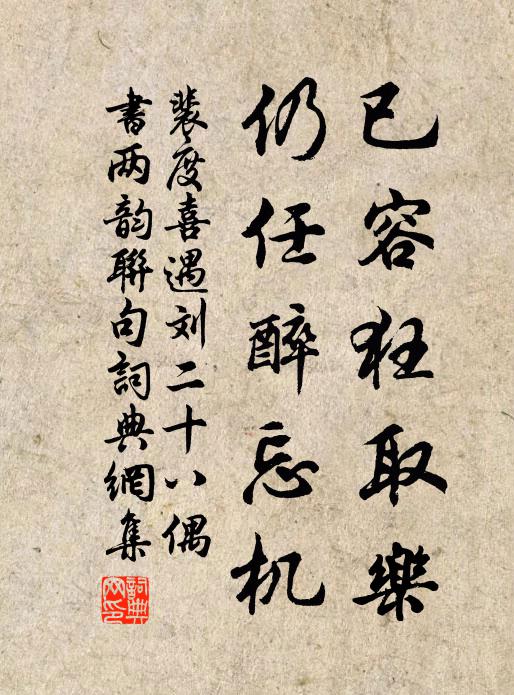 已容狂取樂
仍任醉忘机
裴度喜遇刘二十八偶
書两韵聯句詞典網集
詞典网印